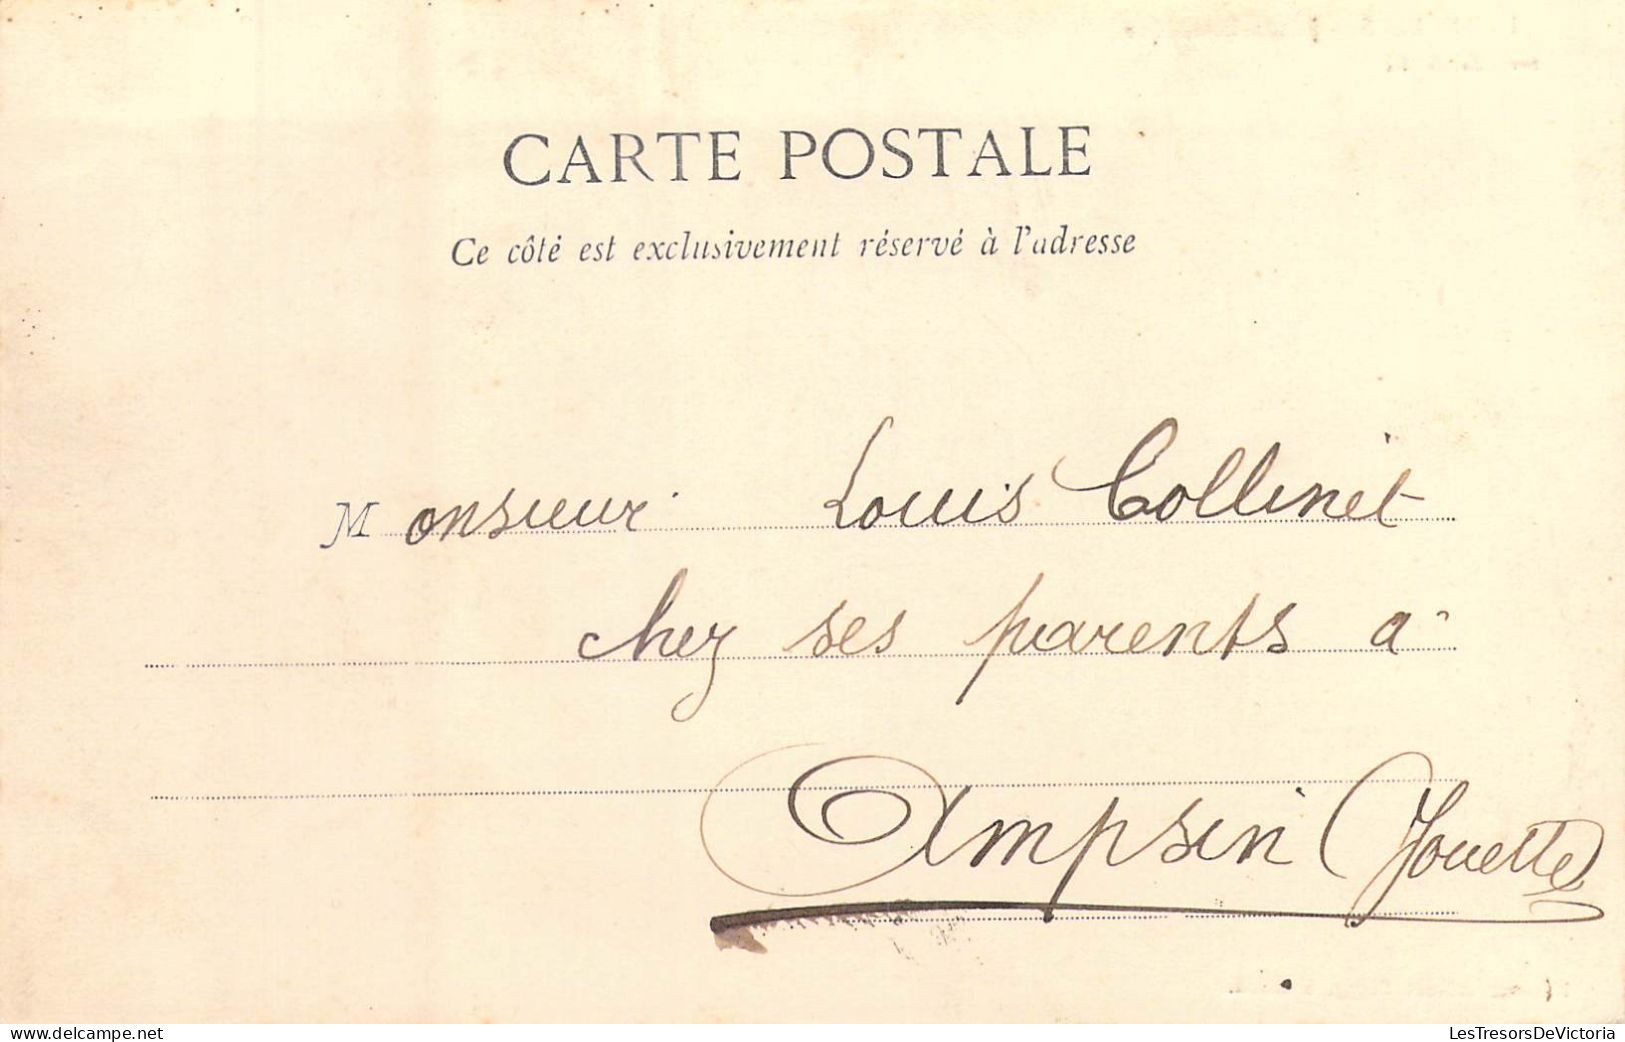 CARTE POSTALE
Ce côté est exclusivement réservé à l'adresse
Monsieur Louis Collinet
chez ses parents à
Ampsin (Jouette)
LesTresorsDeVictoria